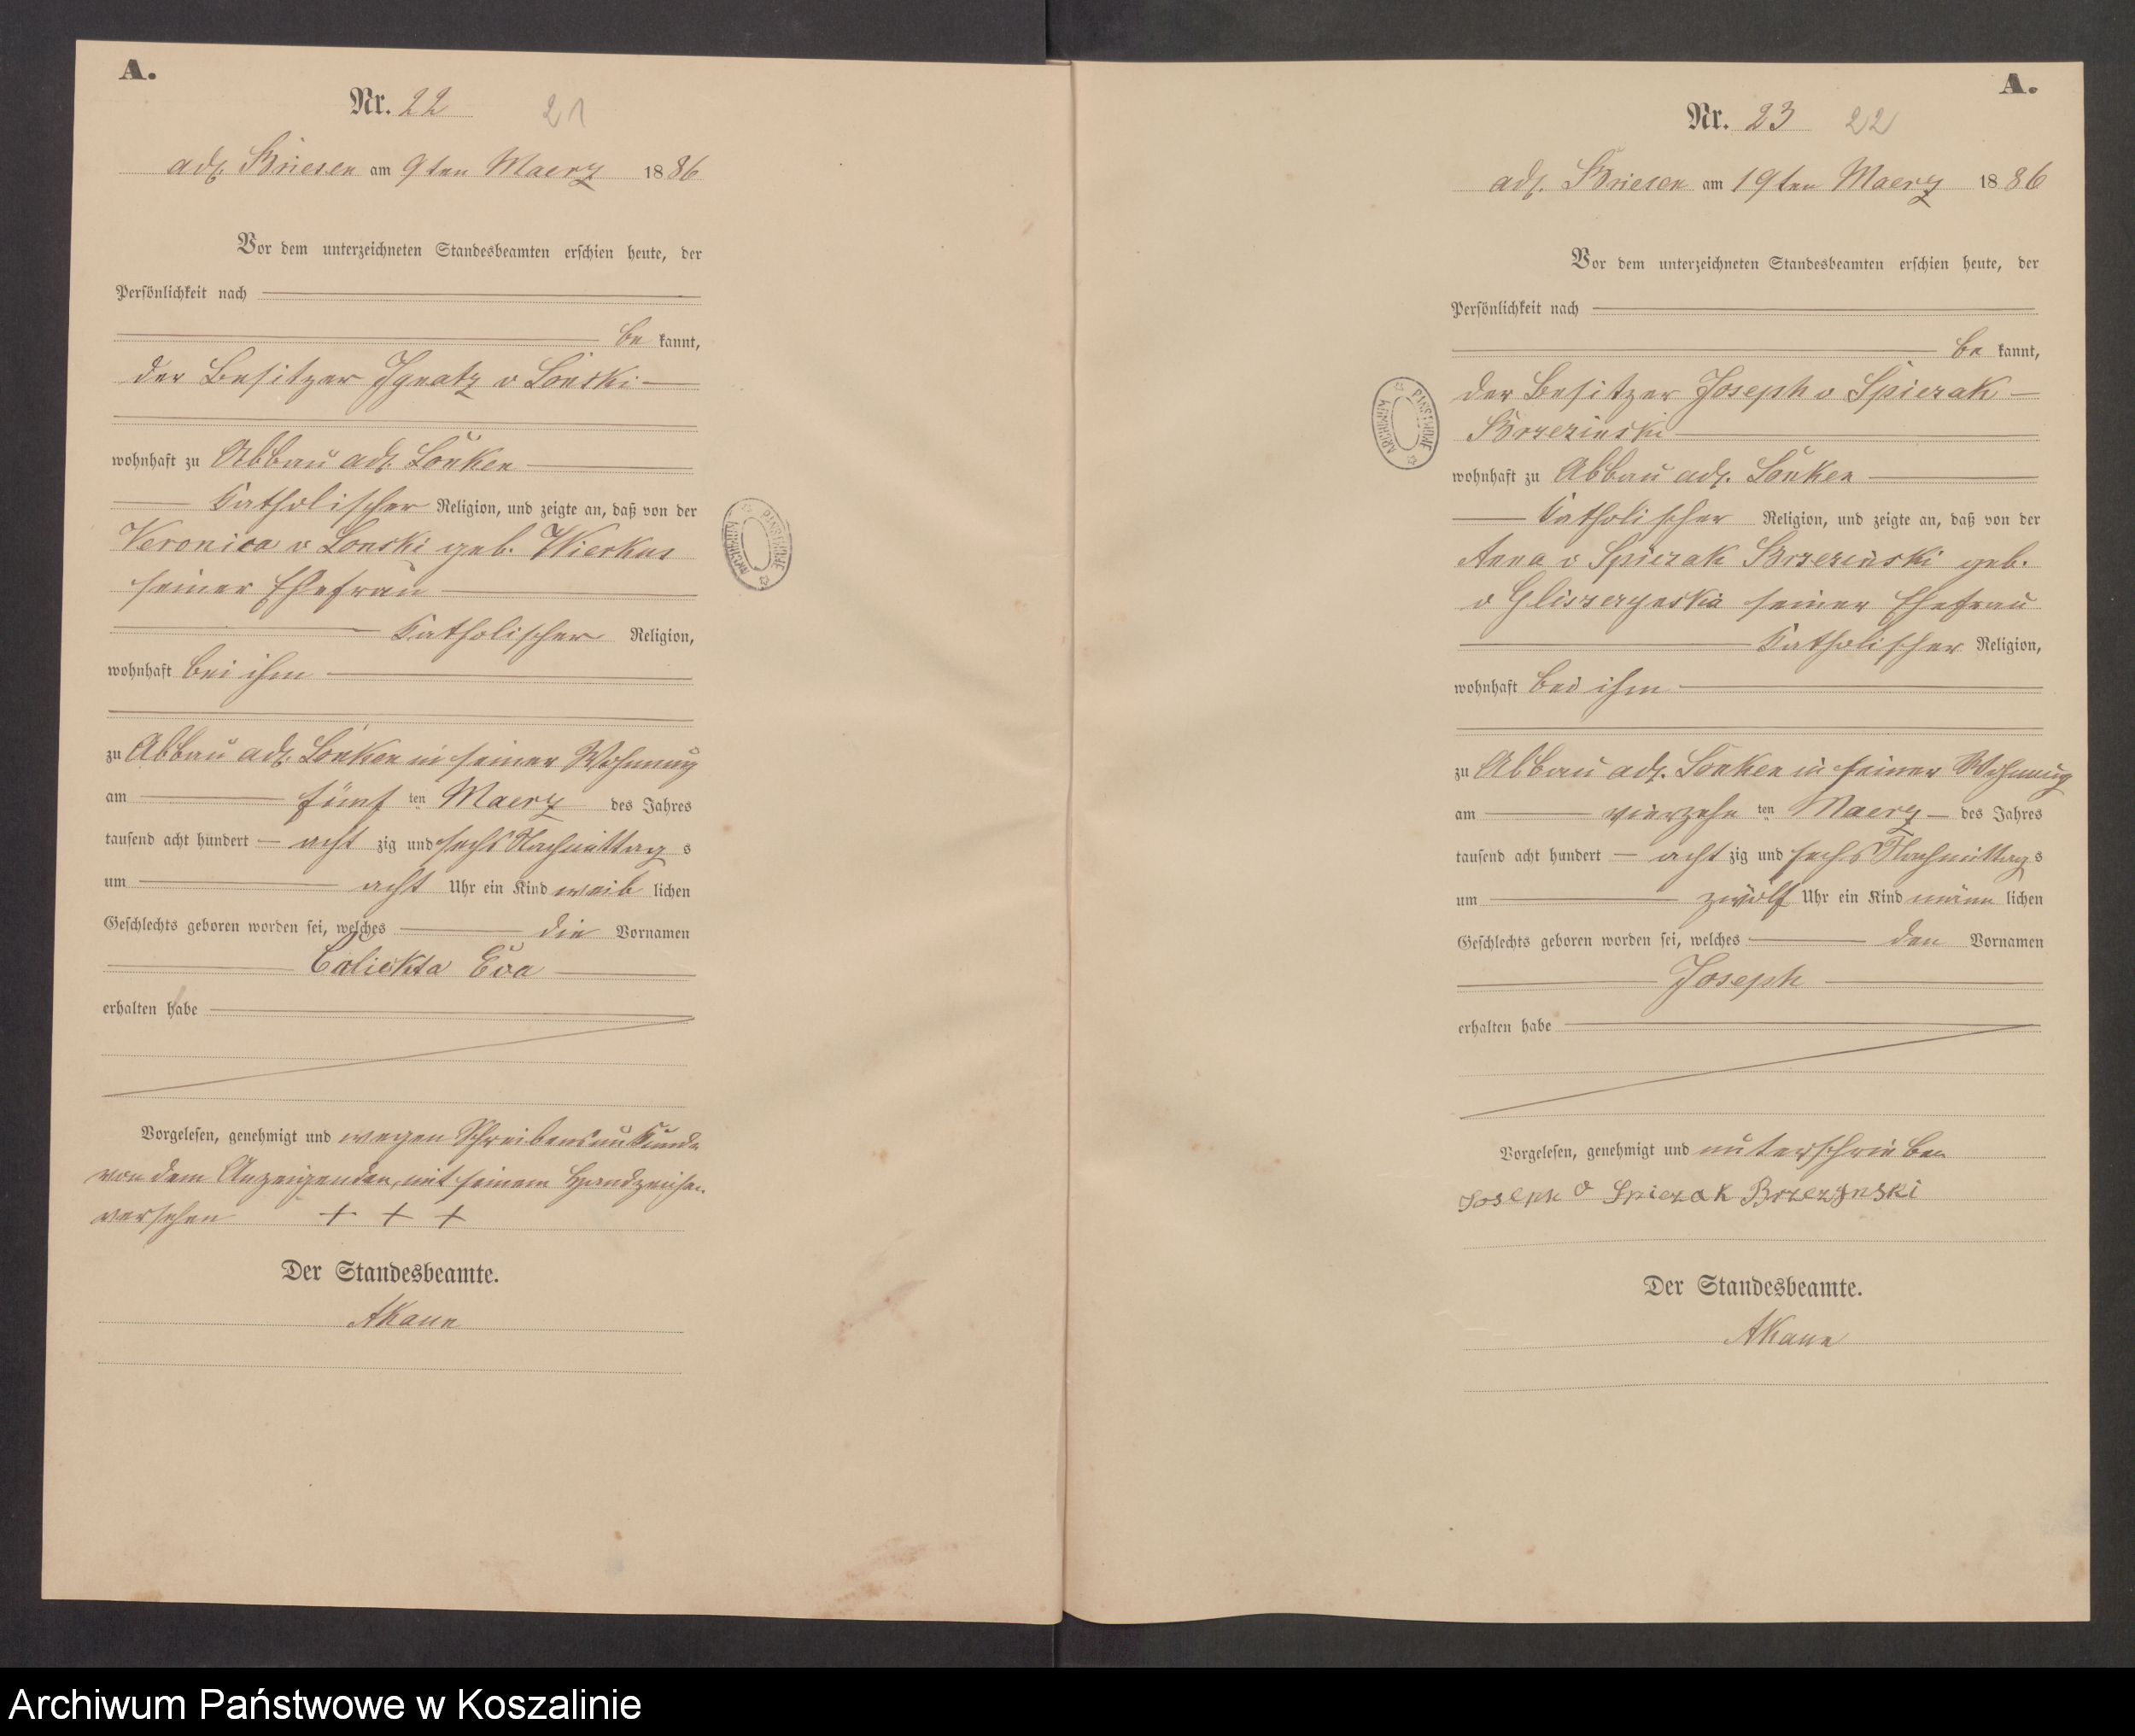 A.
Nr. 22 21
adl. Briesen am 9ten Maerz 1886
Vor dem unterzeichneten Standesbeamten erschien heute, der
Persönlichkeit nach
be kannt,
der Besitzer Ignatz v Lonski
wohnhaft zu Abbau adl. Lonken
Katholischer Religion, und zeigte an, daß von der
Veronica v Lonski geb. Wierkus
seiner Ehefrau
Katholischer Religion,
wohnhaft bei ihm
zu Abbau adl. Lonken in seiner Wohnung
am fünf ten Maerz des Jahres
tausend acht hundert acht zig und sechs Nachmittag s
um acht Uhr ein Kind weib lichen
Geschlechts geboren worden sei, welches die Vornamen
Eva
erhalten habe
Vorgelesen, genehmigt und wegen Schreibensunkunde
von dem Anzeigenden, mit seinem Handzeichen
versehen + + +
Der Standesbeamte.
ARCHIWUM PAŃSTWOWE
A.
Nr. 23 22
adl. Briesen am 19ten Maerz 1886
Vor dem unterzeichneten Standesbeamten erschien heute, der
Persönlichkeit nach
be kannt,
der Besitzer Joseph v Spiczak
Brzezinski
wohnhaft zu Abbau adl. Lonken
Katholischer Religion, und zeigte an, daß von der
Anna v Spiczak Brzezinski geb.
v seiner Ehefrau
Katholischer Religion,
wohnhaft bei ihm
zu Abbau adl. Lonken in seiner Wohnung
am vierzehn ten Maerz des Jahres
tausend acht hundert acht zig und sechs Nachmittag s
um zwölf Uhr ein Kind männ lichen
Geschlechts geboren worden sei, welches den Vornamen
Joseph
erhalten habe
Vorgelesen, genehmigt und unterschrieben
Joseph v Spiczak Brzezynski
Der Standesbeamte.
ARCHIWUM PAŃSTWOWE
Archiwum Państwowe w Koszalinie